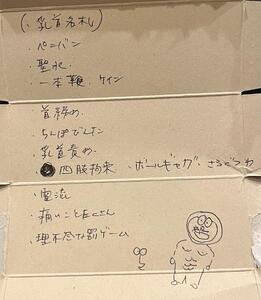 (・乳首名札)
・ペニバン
・聖水
・一本鞭、ケイン
・首絞め
・ちんぽびんた
・乳首責め
四肢拘束 ・ボールギャグ、さるぐつわ
・電流
・痛いことたくさん
・理不尽な罰ゲーム